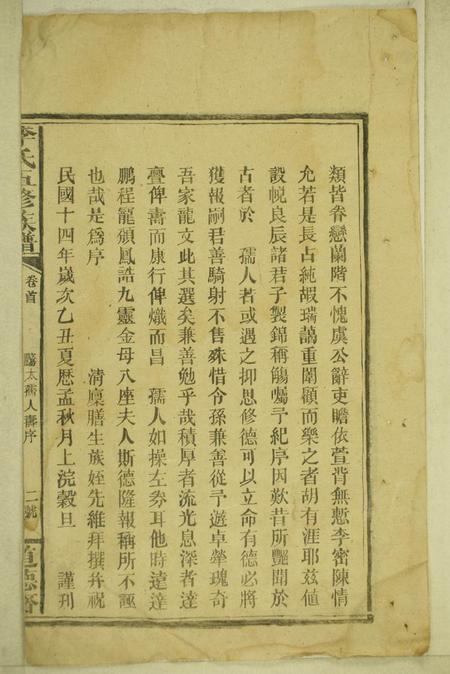 類皆眷戀蘭階不愧虞公辭吏瞻依萱背無慙李密陳情
允若是長占純嘏瑞藹重闈顧而樂之者胡有涯耶茲值
設帨良辰諸君子製錦稱觴囑予紀序因歎昔所艷聞於
古者於 孺人者或遇之抑思修德可以立命有德必將
獲報嗣君善騎射不售殊惜令孫兼善從予遊卓犖瑰奇
吾家龍文此其選矣兼善勉乎哉積厚者流光息深者達
亹俾壽而康行俾熾而昌 孺人如操左券耳他時遠達
鵬程寵頒鳳誥九靈金母八座夫人斯德隆報稱所不誣
也哉是為序 清廩膳生族姪先維拜撰并祝
民國十四年歲次乙丑夏歷孟秋月上浣穀旦 謹刊
李氏五修族譜 卷首 太孺人壽序